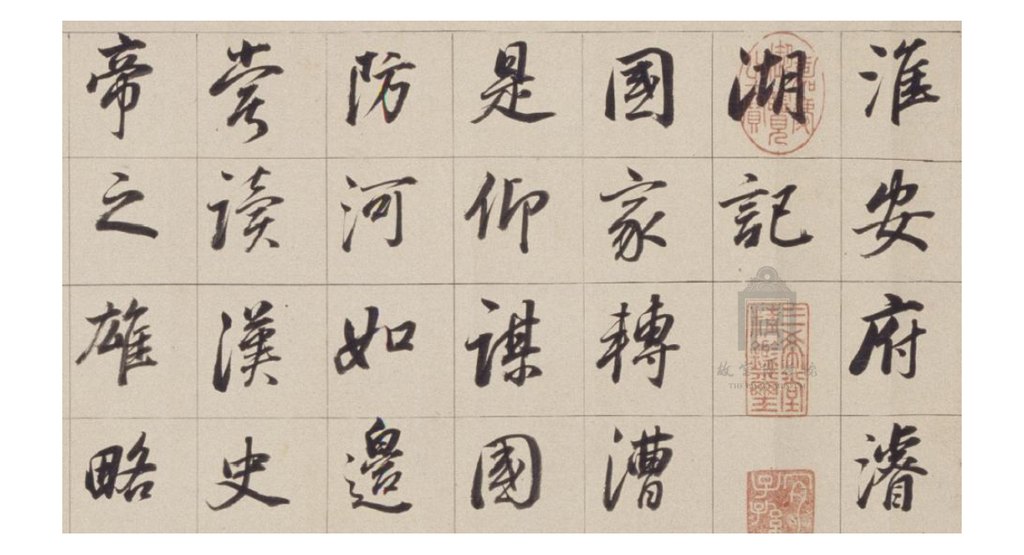 淮安府濬
湖記
國家轉漕
是仰謀國
防河如邊
嘗读漢史
帝之雄略